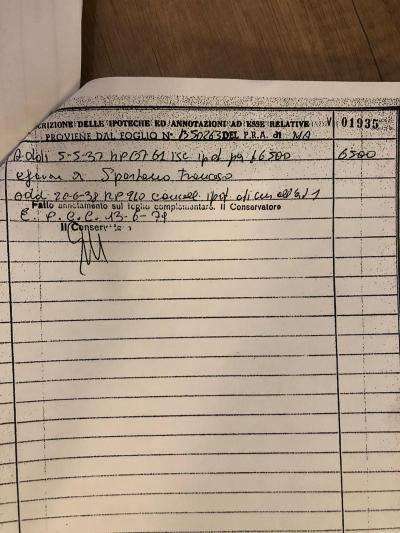 CRIZIONE DELLE IPOTECHE ED ANNOTAZIONI AD ESSE RELATIVE V 01935
PROVIENE DAL FOGLIO N° 350263 DEL P.R.A. di NA
Addì 5-5-37 ipot per £ 6500 6500
a favore di Francesco
Add 20-6-38 NP 910 cancell ipot di cui al N 1
Fatto annotamento sul foglio complementare. Il Conservatore
E. P. C. C. 13-6-79
Il Conserv